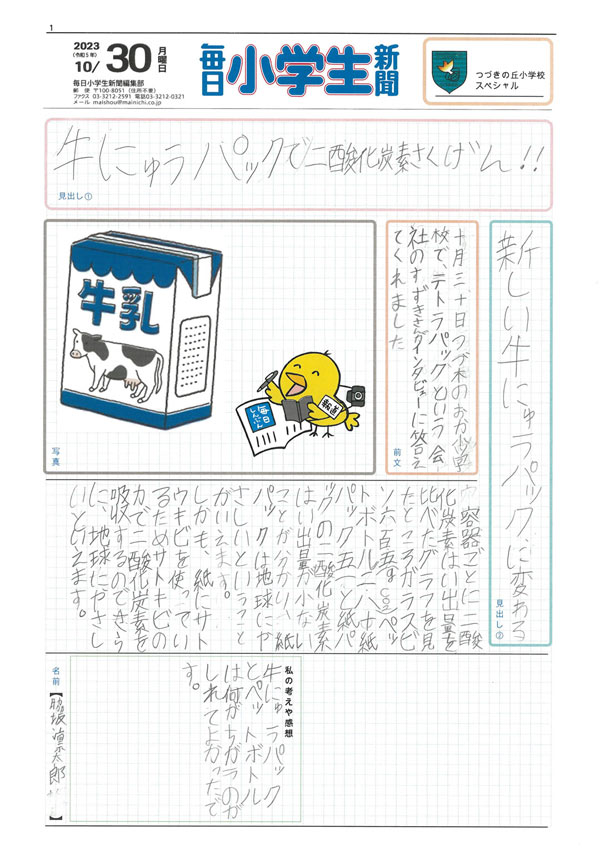 1
2023
(令和5年)
10/30
月曜日
毎日小学生新聞編集部
郵 便 〒100-8051 (住所不要)
ファクス 03-3212-2591 電話03-3212-0321
メール maishou@mainichi.co.jp
毎日小学生新聞
つづきの丘小学校
スペシャル
牛にゅうパックで二酸化炭素さくげん!!
見出し①
新しい牛にゅうパックに変わる
見出し②
十月三十日つづ木のおか小学
校で、テトラパックという会
社のすずきさんがインタビューに答え
てくれました
前文
牛乳
毎日
しんぶん
報道
写真
容器ごとに二酸
化炭素はい出量を
比べたグラフを見
たところガラスビ
ン六百五す(CO2)ペッ
トボトル二八十紙
パック五一と紙パ
ックの二酸化炭素
はい出量が少ない
ことが分かり、紙
パックは地球にや
さしいということ
がいえます。
しかも、紙にサト
ウキビを使ってい
るためサトキビの
力で二酸化炭素を
吸収するのでさら
に、地球にやさし
いといえます。
私の考えや感想
牛にゅうパック
とペットボトル
は何がちがうのか
しれてよかったで
す。
名前【脇坂凛太郎】